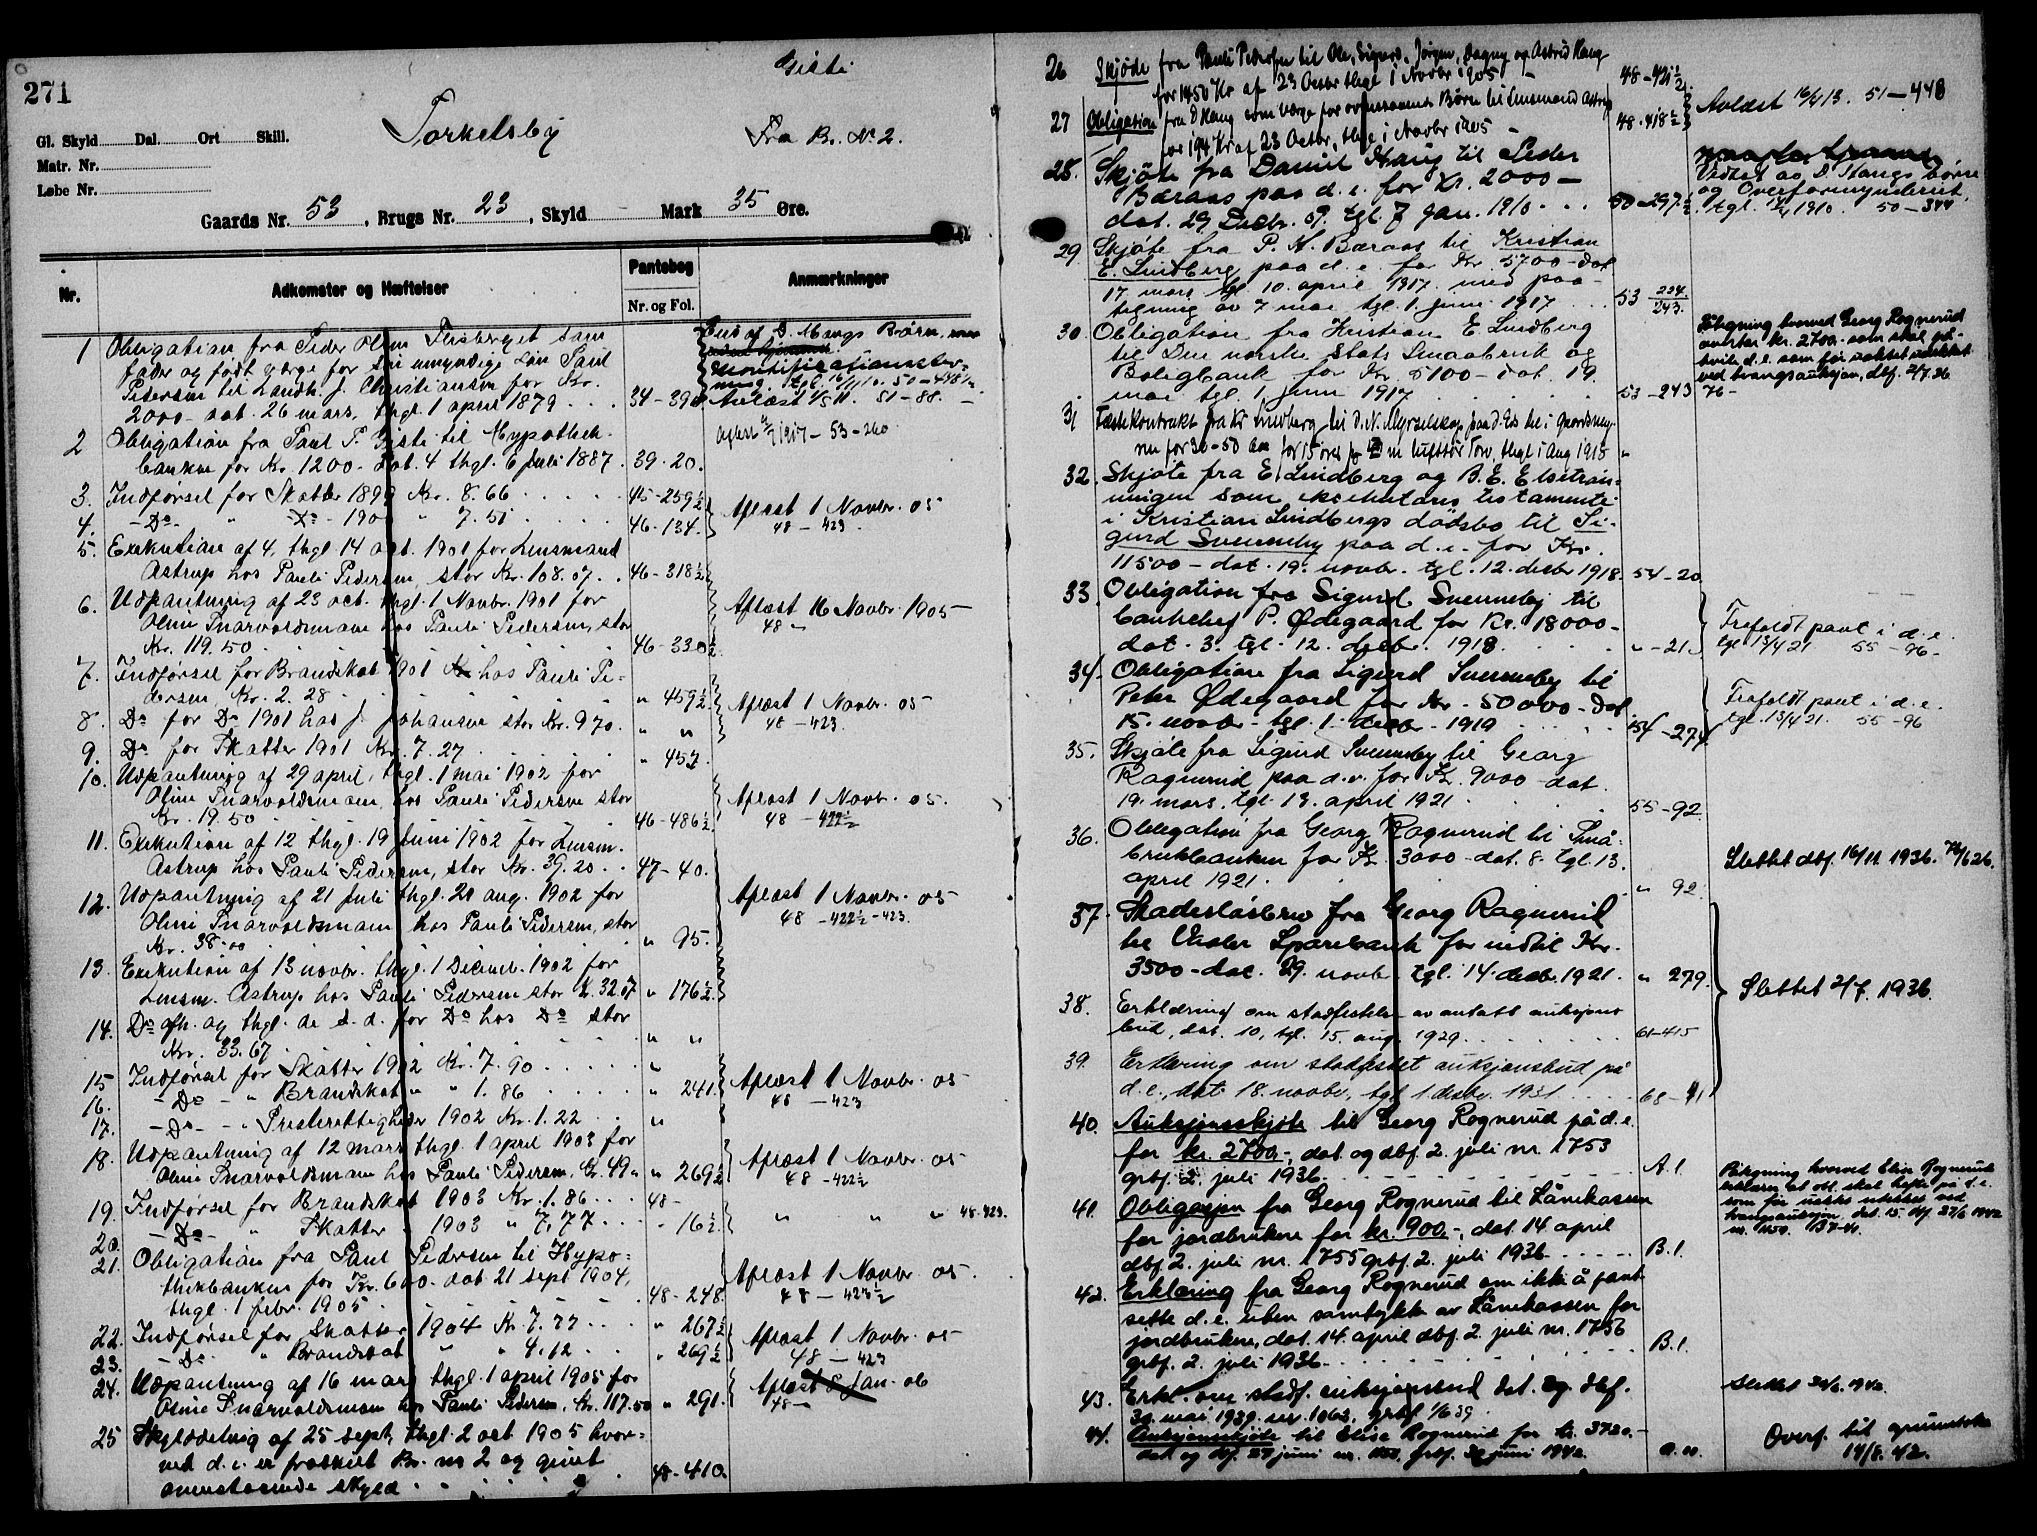 271
Gisti
Gl. Skyld Dal. Ort Skill.
Torkelsby
Fra Br. No 2.
Matr. Nr.
Løbe Nr.
Gaards Nr. 53, Brugs Nr. 23, Skyld Mark 35 Øre.
Nr. Adkomster og Hæftelser Pantebog Nr. og Fol. Anmærkninger
1 Obligation fra Peder Olsen som
fader og født værge for sin umyndige søn Paul
Pedersen til Landh. J. Christiansen for Kr.
2000 - dat. 26 mars, thgl. 1 april 1879 . . . 34-39
Aflæst 51-88.
2 Obligation fra Paul P. Gisti til Hypothek-
banken for Kr. 1200 - dat. 4 thgl. 6 Juli 1887. 39-20.
Aflæst 1917-53-260
3. Indførsel for Skatter 1899 Kr. 8.66 45-259½
4. - Do - " - Do - 190 " 7.51 46-134.
Aflæst 1 Novbr. 05
48-423
5. Exekution af 4, thgl 14 oct. 1901 for Lensmand
Astrup hos Pauli Pedersen, stor Kr. 108.07. . 46-318½
6. Udpantning af 23 oct. thgl. 1 Novbr. 1901 for
Oline Snarvoldsmoen hos Pauli Pedersen, stor
Kr. 119.50 46-330½
Aflæst 16 Novbr. 1905
48 -
7. Indførsel for Brandskat 1901 hos Pauli Pe-
dersen Kr. 2.28 " 459½
8. Do for Do 1901 hos J. Johansen stor Kr. 9 70. " "
Aflæst 1 Novbr. 05
48-423.
9. Do for Skatter 1901 Kr. 7.27 " 457.
10. Udpantning af 29 april, thgl. 1 mai 1902 for
Oline Snarvoldsmoen, hos Pauli Pedersen stor
Kr. 19.50 46-486½
Aflæst 1 Novbr. 05.
48-422½
11. Exekution af 12 thgl. 19 Juni 1902 for Lensm.
Astrup hos Pauli Pedersen, stor Kr. 39.20 . . 47-40.
12. Udpantning af 21 Juli thgl. 20 aug. 1902 for
Oline Snarvoldsmoen hos Pauli Pedersen, stor
Kr. 38.00 " 95.
Aflæst 1 Novbr. 05
48-422½-423.
13. Exekution af 13 novbr. thgl. 1 Decemb. 1902 for
Lensm. Astrup hos Pauli Pedersen stor Kr. 32.07 " 176½
14. Do afh. og thgl. de s. d. for Do hos Do stor
Kr. 33.67 " "
15 Indførsel for Skatter 1902 Kr. 7.90 "
16. - Do - " Brandskat " " 1.86 " 241.
17. - Do - " Presterettigheder 1902 Kr. 1.22 "
Aflæst 1 Novbr. 05
48-423
18. Udpantning af 12 mars thgl. 1 april 1903 for
Oline Snarvoldsmoen hos Pauli Pedersen, Kr. 49 " 269½
Aflæst 1 Novbr. 05
48-422½
19. Indførsel for Brandskat 1903 Kr. 1.86 . . . 48-
20. - Do - " Skatter 1903 " 7.77 . . . " 16½
" " " 48-423.
21. Obligation fra Paul Pedersen til Hypo-
thekbanken for Kr. 600 - dat. 21 sept 1904,
thgl. 1 febr. 1905 48-248.
Aflæst 1 Novbr. 05.
48-423½
22. Indførsel for Skatter 1904 Kr. 7.77 " 267½
23. - Do - " Brandskat " " 4.12 " 269½
Aflæst 1 Novbr. 05
48-423
24. Udpantning af 16 mars thgl. 1 april 1905 for
Oline Snarvoldsmoen hos Pauli Pedersen, Kr. 117.50 " 291.
Aflæst 8 Jan. 06
48-
25 Skylddeling af 25 sept, thgl. 2 oct 1905 hvor-
ved d. e. er fraskilt Br. no 2 og givet
ovenstaaende skyld 48-410.
26 Skjøde fra Pauli Pedersen til Ole, Sigurd, Jørgen, Dagny og Astrid Haug
for 1450 Kr af 23 Octbr thgl 1 Novbr 1905 48-421½
27 Obligation fra D Haug som værge for ovennævnte Børn til Lensmand Astrup
for 194 Kr af 23 Octbr, thgl 1 Novbr 1905 48-418½
Avlæst 16/4 13. 51-448
28. Skjøte fra Daniel Haug til Peder
Bæraas paa d. e. for Kr. 2000 -
dat. 29 Decbr. 09. tgl. 7 Jan. 1910. . . 50-297½
Vedtat av D. Haugs børn
og Overformynderiet
tgl. 1910. 50-344
29 Skjøte fra P. K. Bæraas til Kristian
E. Lindberg paa d. e. for Kr. 5700 - dat
17 mars tgl. 10. april 1917. med paa-
tegning av 7 mai tgl. 1. juni 1917 . . . 53 234/243.
30. Obligation fra Kristian E. Lindberg
til Den norske Stats Smaabruk og
Boligbank for Kr. 5100 - dat. 19.
mai tgl. 1 juni 1917 53-243
Påtegning hvorved Georg Rognerud
overtar kr. 2700.- som skal på-
hvile d. e. som før uaktet utelukket
ved tvangsauksjon, dbf. 2/7. 36
31 Fæstekontrakt fra Kr Lindberg til D. N. Myrselskap paa d. Es
for 30-50 aar for 15 øre pr m lufttør Torv, thgl 1 Aug 1918 "
32. Skjøte fra E Lindberg og B. E. Elsetrøn-
ningen som exekutorer testamenti
i Kristian Lindbergs dødsbo til Si-
gurd Svenneby paa d. e. for Kr.
11500 - dat. 19. novbr. tgl. 12. decbr 1918. 54-20
33 Obligation fra Sigurd Svenneby til
bankchef P. Ødegaard for Kr. 18000 -
dat. 3. tgl. 12. decbr. 1918. " -21.
Frafaldt pant i d. e.
tgl 13/4 21 55-96-
34. Obligation fra Sigurd Svenneby til
Peter Ødegaard for Kr. 50000 - dat
15. novbr. tgl. 1. decbr. 1919 54-274
Frafaldt pant i d. e.
tgl. 13/4 21. 55-96
35. Skjøte fra Sigurd Svenneby til Georg
Ragnerud paa d. e. for Kr. 9000 dat.
19. mars, tgl. 13. april 1921 55-92
36. Obligation fra Georg Ragnerud til Små-
brukbanken for Kr. 3000 - dat. 8. tgl. 13.
april 1921. " 92.
Slettet dbf. 16/11. 1936.
37. Skadesløsbrev fra Georg Ragnerud
til Våler Sparebank for indtil Kr.
3500 - dat. 29. novbr. tgl. 14. decbr. 1921. " 279.
38. Erklæring om stadfestelse av antatt auksjons
bud, dat. 10, tgl. 15. aug. 1929 61-415
Slettet 2/7. 1936.
39. Erklæring om stadfestet auksjonsbud på
d. e., dat. 18. novbr., tgl 1. desbr. 1931 . . . . 68-41
40. Auksjonsskjøte til Georg Rognerud på d. e.
for kr. 2700.-, dat. og dbf. 2. juli nr. 1753
grbf. 2. juli 1936. A.1.
41. Obligasjon fra Georg Rognerud til Lånekassen
for jordbrukere for kr. 900.-, dat. 14 april
dbf. 2. juli nr. 1755 grbf. 2. juli 1936. B.1.
Påtegning hvorved Elise Rognerud
erklærer at obl. skal hefte på d. e.
som før uaktet utelukket ved
tvangsauksjon, dat. 15. dbf. 27/6 1940
42. Erklæring fra Georg Rognerud om ikke å pant-
sette d. e. uten samtykke av Lånekassen for
jordbrukere, dat. 14. april dbf. 2. juli nr. 1756
grbf. 2. juli 1936. B.1.
43. Erkl. om stadf. auksjonsbud dat. og dbf.
30 mai 1939. nr. 1063, grbf 1/6 39.
44. Auksjonsskjøte til Elise Rognerud for kr. 3720.-
dat og dbf. 27 juni nr. grbf. juni 1940.
Overf. til grunnbok
14/8. 42.